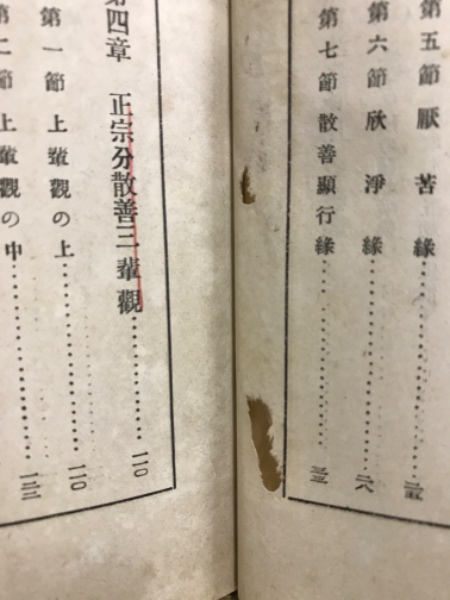 第五節 厭苦緣…………二五
第六節 欣淨緣…………二八
第七節 散善顯行緣…………三三
第四章 正宗分散善三輩觀…………一一〇
第一節 上輩觀の上…………一一〇
第二節 上輩觀の中…………一二二